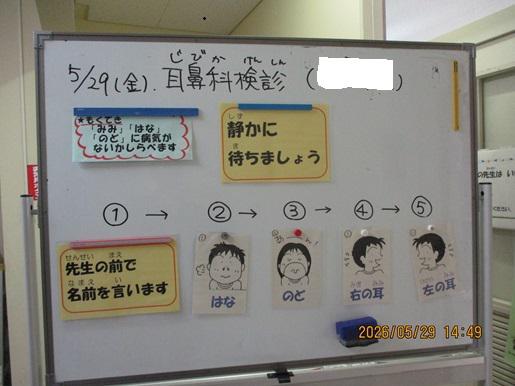 じびか けんしん
5/29(金). 耳鼻科検診 (
)
★もくてき
「みみ」「はな」
「のど」に病気が
ないかしらべます
しず
静かに
ま
待ちましょう
① → ② → ③ → ④ → ⑤
せんせい まえ
先生の前で
なまえ い
名前を言います
はな
のど
みぎ みみ
右の耳
ひだり みみ
左の耳
の先生は い
2026/05/29 14:49